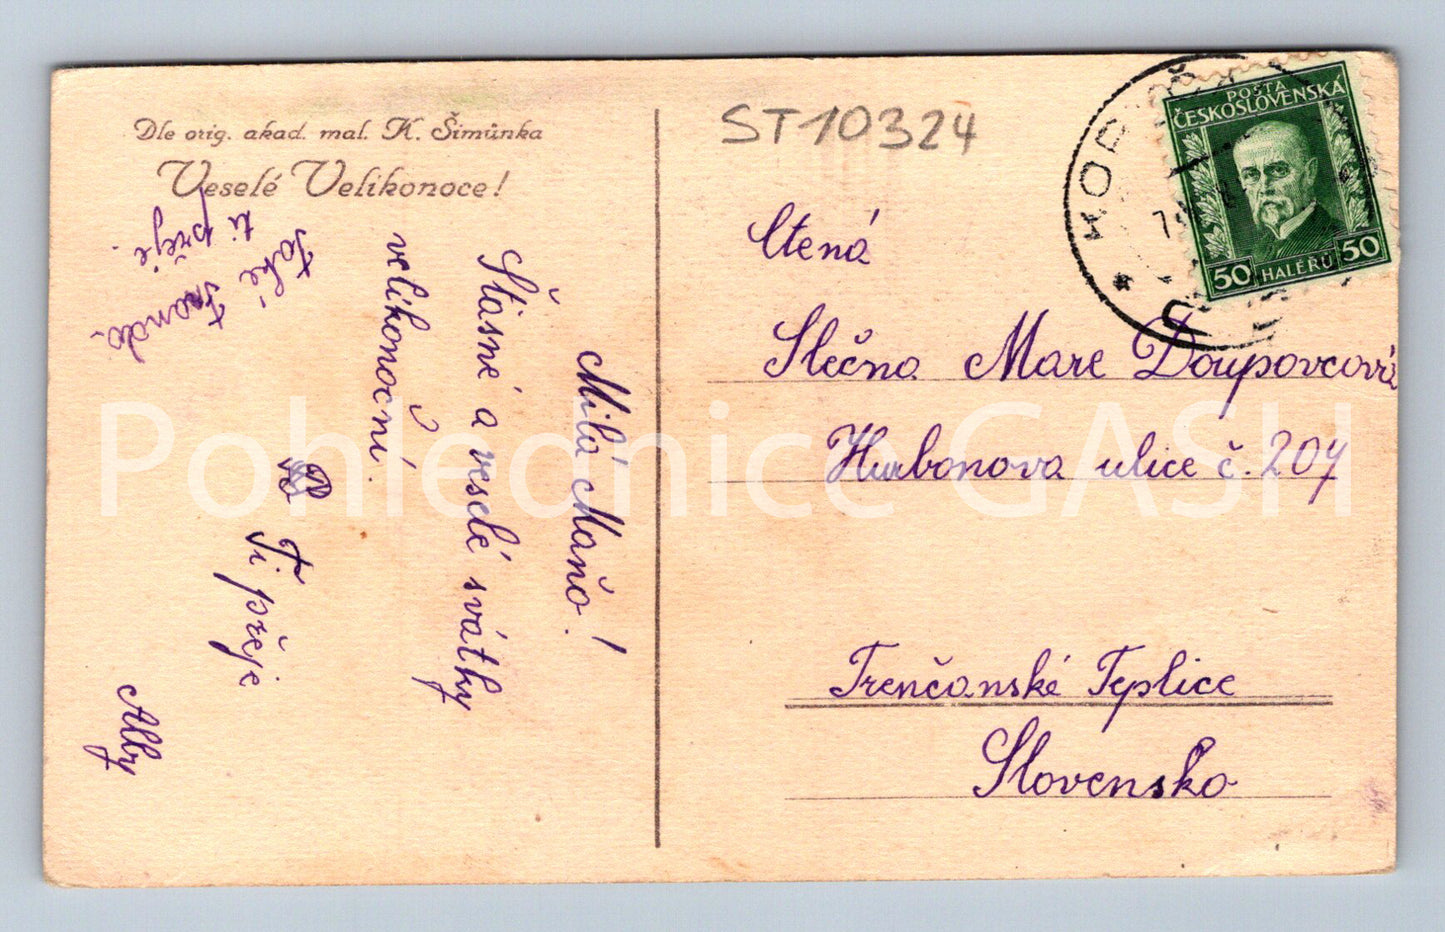 Dle orig. akad. mal. K. Šimůnka
Veselé Velikonoce!
ST10324
POŠTA
ČESKOSLOVENSKÁ
50 HALÉŘŮ 50
Milá Maňo!
Štasné a veselé svátky
velikonoční.
Ti přeje
Alby
Také Franda.
ti přeje.
Ctená
Slečna Mare Doupovcová
Hurbonova ulice č. 207
Trenčanské Teplice
Slovensko
Pohlednice GASH